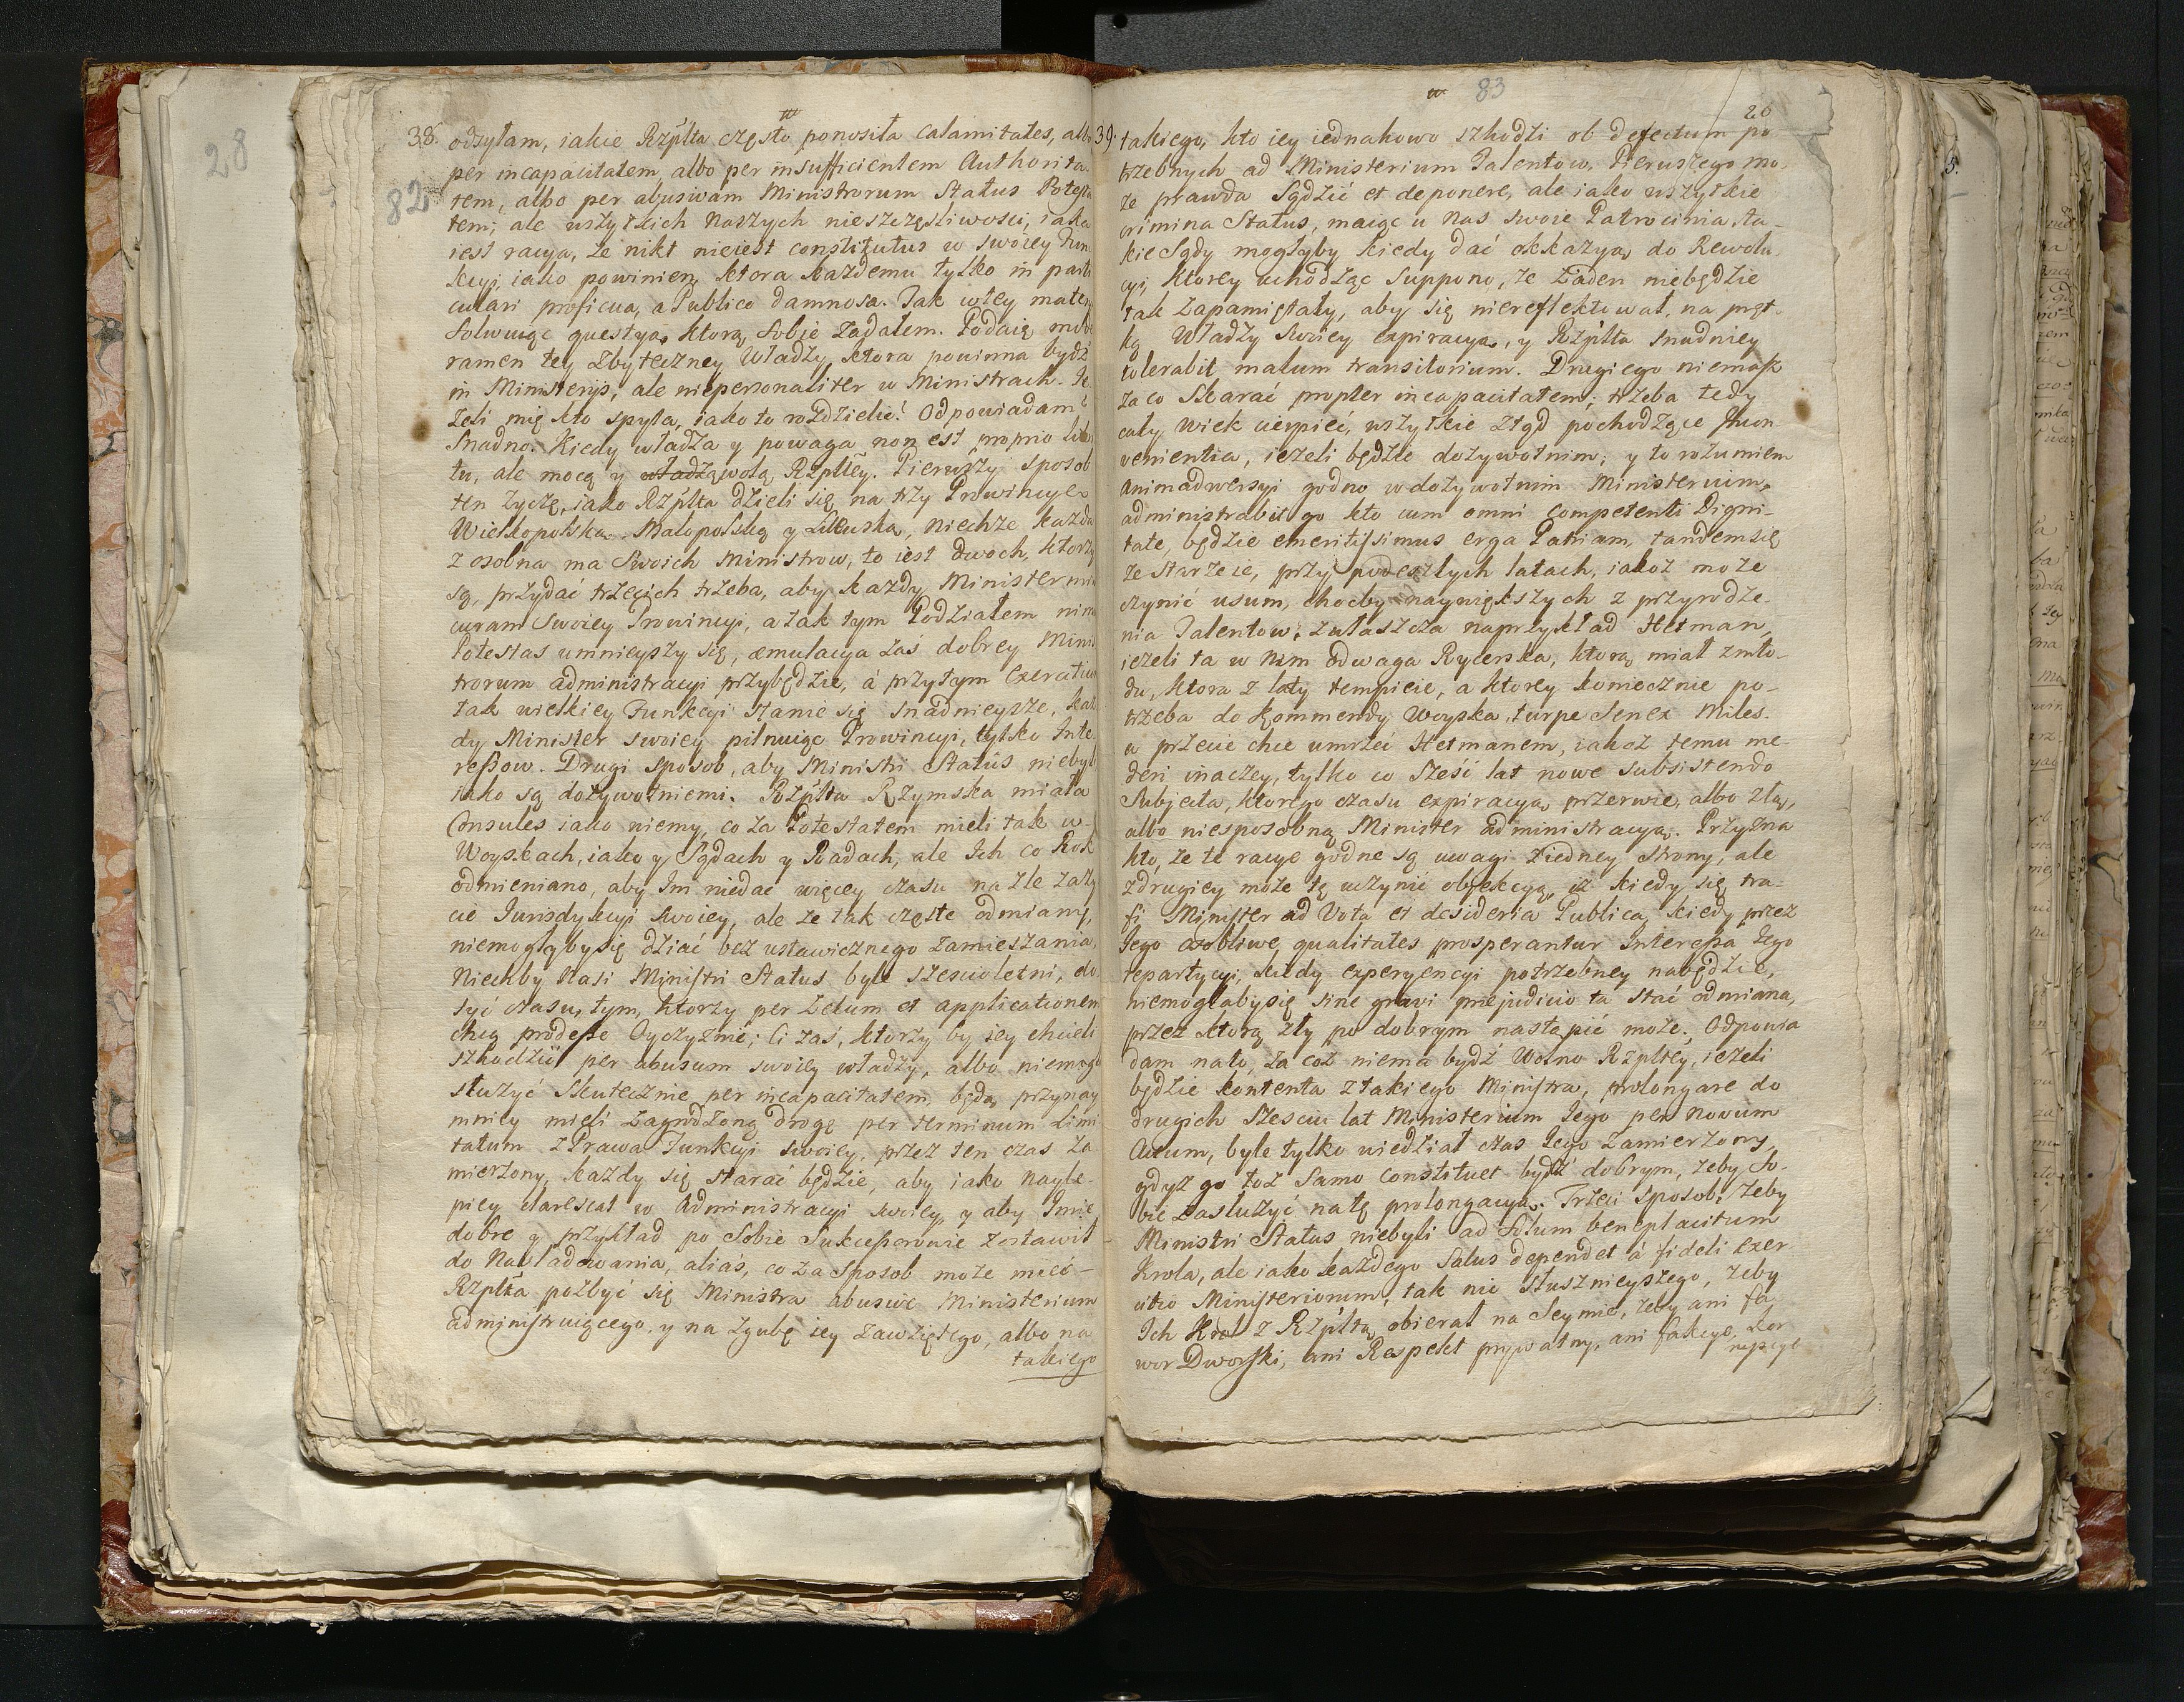 28
82
38. odsyłam, iakie Rzplta często ponosiła calamitates, albo
per incapacitatem, albo per insufficientem Authorita-
tem, albo per abusivam Ministrorum Status Potesta
tem; ale wszytkich naszych nieszczęśliwości, iaka
iest racya, że nikt nieiest constitutus w swoiey Fun
kcyi, iako powinien, ktora każdemu tylko in parti
culari proficua, a Publico damnosa. Tak w tey materyi
Solwuiąc questyą, ktorą sobie zadałem. Podaię mode
ramen tey zbyteczney Władzy, ktora powinna bydź
in Ministeriis, ale niepersonaliter w Ministrach. Je
żeli mię kto spyta, iako to rozdzielić? Odpowiadam
Snadno. Kiedy władza y powaga non est proprio libi
tu, ale mocą y władzą wolą Rzpltey. Pierwszy sposob
ten życzę, iako Rzplta dzieli się na trzy Prowincye
Wielkopolską, Małopolską y Litewską, niechże każda
z osobna ma Swoich Ministrow, to iest dwoch, ktorzy
są, przydać trzecich trzeba, aby każdy Minister miał
curam Swoiey Prowincyi, a tak tym Podziałem nimia
Potestas umnieyszy się, æmulacya zaś dobrey Minis
trorum administracyi przybędzie, á przytym Exercitium
tak wielkiey Funkcyi stanie się snadnieysze, każ
dy Minister swoiey pilnuiąc Prowincyi, tylko Inte
ressow. Drugi sposob, aby Ministri Status niebyli
iako są dożywotniemi. Rzplta Rzymska miała
Consules iako niemy, co za Potestatem mieli tak w
Woyskach, iako y Sądach y Radach, ale Ich co Rok
odmieniano, aby Im niedać więcey czasu na złe zaży
cie Jurisdykcyi swoiey, ale że tak częste odmiany,
niemogłyby się dziać bez ustawicznego zamieszania,
Niechby Nasi Ministri Status byle sześcioletni, do
syć czasu, tym, ktorzy per Zelum et applicationem
chcą prodesse Oyczyznie; Ci zaś, ktorzy by iey chcieli
szkodzić per abusum swoiey władzy, albo niemogą
służyć skutecznie per incapacitatem, będą przynay
mniey mieli zagrodzoną drogę per terminum Limi
tatum z Prawa Funkcyi swoiey, przez ten czas za
mierzony, każdy się starać będzie, aby iako nayle-
piey clarescat w Administracyi swoiey, y aby Imię
dobre y przykład po Sobie Sukcessorowie zostawił
do Nasladowania, aliás, co za sposob może mieć-
Rzplta pozbyć się Ministra abusive Ministerium
administruiącego, y na zgubę iey zawziętego, albo na
takiego
83
26
39. takiego, kto iey iednakowo szkodzi ob defectum po
trzebnych ad Ministerium Talentow. Pierwszego mo-
że prawda Sądzić et deponere, ale iako wszytkie
crimina Status, maiąc u nas swoie Patrocinia, ta-
kie Sądy mogłyby kiedy dać okkazyą do Rewolu-
cyi, ktorey uchodząc suppono, że żaden niebędzie
tak zapamiętały, aby się niereflektował, na pręt-
ką Władzy swoiey expiracyą, y Rzplta snadniey
tolerabit malum transitorium. Drugiego niemasz
za co skarać propter incapacitatem; trzeba tedy
cały wiek cierpieć, wszytkie ztąd pochodzące Incon-
venientia, ieżeli będzie dożywotnim; y to rozumiem
animadwersyi godno w dożywotnim Ministerium,
administrabit go kto cum omni competenti Digni-
tate, będzie emeritissimus erga Patriam, tandem się
ze starzeie, przy podeszłych latach, iakoż może
czynić usum, choćby naywiększych z przyrodze-
nia Talentow; zwłaszcza naprzykład Hetman,
ieżeli ta w Nim odwaga Rycerska, ktorą miał zmło-
du, ktora z laty tempieie, a ktorey koniecznie po-
trzeba do Kommendy Woyska, turpe Senex Miles.
a przecie chce umrzeć Hetmanem, iakoż temu me-
deri inaczey, tylko co sześć lat nowe subsistendo
Subjecta, ktorego czasu expiracya przerwie, albo złą,
albo niesposobną Minister administracyą. Przyzna
kto, że te racye godne są uwagi ziedney strony, ale
zdrugiey może tę uczynić obiekcyą, iż kiedy się tra-
fi Minister ad Vota et desideria Publica, kiedy przez
Jego osobliwe qualitates prosperantur Interessa Jego
repartycyi, kiedy experyencyi potrzebney nabędzie,
niemogłaby się sine gravi præjudicio ta stać odmiana,
przez ktorą zły po dobrym nastąpić może; Odpowia
dam nato, za coż niema bydź Wolno Rzpltey, ieżeli
będzie kontenta z takiego Ministra, prolongare do
drugich sześciu lat Ministerium Jego per novum
Actum, byle tylko wiedział czas Jego zamierzony,
gdyż go toż samo constituet bydź dobrym, żeby So-
bie zasłużyć natę prolongacyą. Trzeci sposob: żeby
Ministri Status niebyli ad Solum beneplacitum
Krola, ale iako każdego Salus dependet á fideli exer
citio Ministeriorum, tak nic słusznieyszego, żeby
Ich Krol z Rzpltą obierał na Seymie, żeby ani fa-
wor Dworski, ani Respekt prywatny, ani fakcye, Kor
rupcye
5.